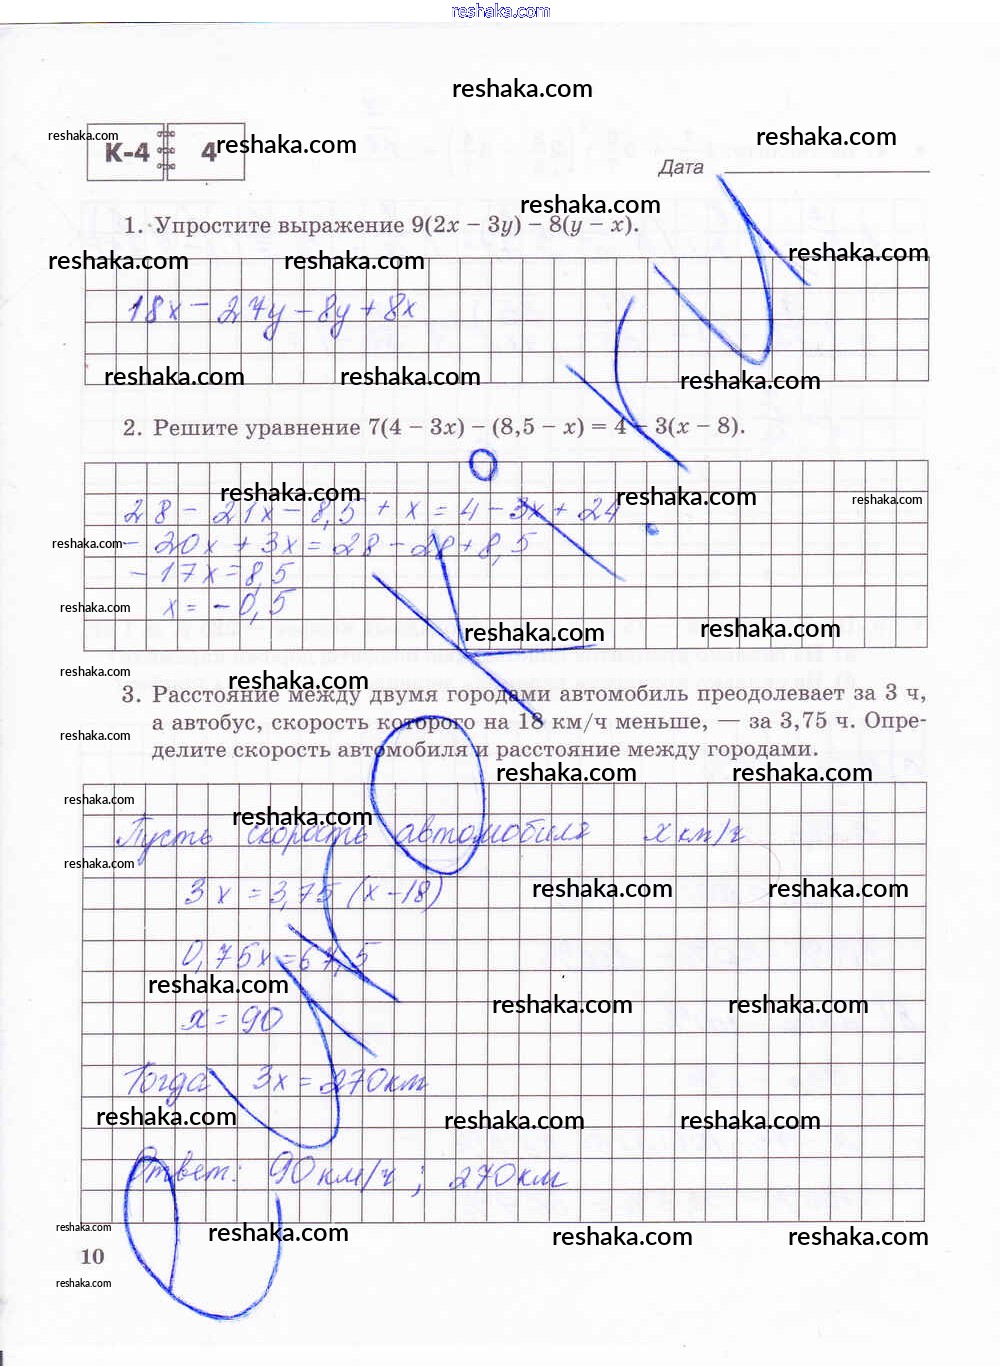 reshaka.com
reshaka.com
reshaka.com
К-4 4 reshaka.com
reshaka.com
Дата
reshaka.com
1. Упростите выражение 9(2x – 3y) – 8(y – x).
reshaka.com reshaka.com reshaka.com
18x – 27y – 8y + 8x
reshaka.com reshaka.com reshaka.com
2. Решите уравнение 7(4 – 3x) – (8,5 – x) = 4 – 3(x – 8).
reshaka.com reshaka.com reshaka.com
28 – 21x – 8,5 + x = 4 – 3x + 24
reshaka.com
– 20x + 3x = 28 – 28 + 8,5
– 17x = 8,5
reshaka.com
x = – 0,5
reshaka.com reshaka.com
reshaka.com reshaka.com
3. Расстояние между двумя городами автомобиль преодолевает за 3 ч,
а автобус, скорость которого на 18 км/ч меньше, — за 3,75 ч. Опре-
reshaka.com
делите скорость автомобиля и расстояние между городами.
reshaka.com reshaka.com
reshaka.com
reshaka.com
Пусть скорость автомобиля x км/ч
reshaka.com
3x = 3,75 (x – 18)
reshaka.com reshaka.com
0,75x = 67,5
reshaka.com reshaka.com reshaka.com
x = 90
Тогда 3x = 270 км
reshaka.com reshaka.com reshaka.com
Ответ: 90 км/ч ; 270 км
reshaka.com
reshaka.com reshaka.com reshaka.com
10
reshaka.com